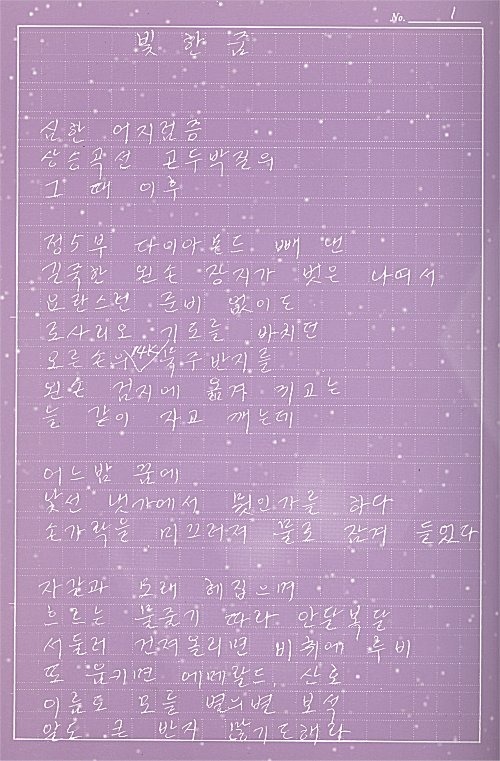 No. 1
빛 한 줌
심한 어지럼증
상승곡선 곤두박질의
그 때 이후
정5부 다이아몬드 빼 낸
길쭉한 왼손 장지가 벗은 나여서
요란스런 준비 없이도
로사리오 기도를 바치던
오른손의 14K 묵주반지를
왼손 검지에 옮겨 끼고는
늘 같이 자고 깨는데
어느 밤 꿈에
낯선 냇가에서 뭣인가를 하다
손가락을 미끄러져 물로 잠겨 들었다
자갈과 모래 헤집으며
흐르는 물줄기 따라 안달복달
서둘러 건져올리면 비취에 루비
또 움키면 에메랄드, 산호
이름도 모를 별의별 보석
알도 큰 반지 많기도해라